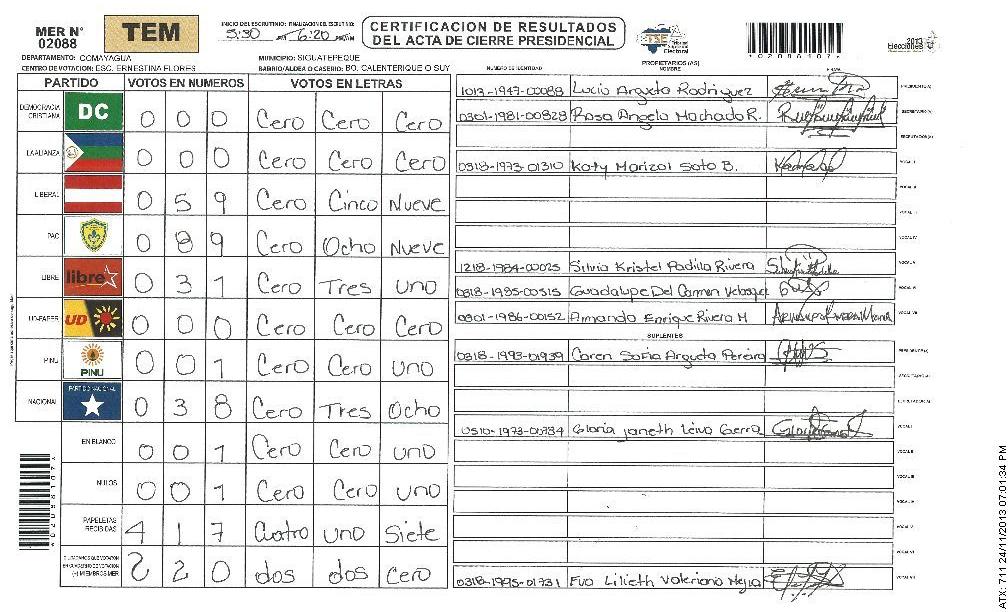 MER N° 02088
TEM
INICIO DEL ESCRUTINIO: FINALIZACION DEL ESCRUTINIO:
5:30 6:20
CERTIFICACION DE RESULTADOS
DEL ACTA DE CIERRE PRESIDENCIAL
TSE Tribunal Supremo Electoral
*02088107*
2013 Elecciones
DEPARTAMENTO: COMAYAGUA
MUNICIPIO: SIGUATEPEQUE
CENTRO DE VOTACION: ESC. ERNESTINA FLORES
BARRIO/ALDEA O CASERIO: BO. CALENTERIQUE O SUY
PARTIDO VOTOS EN NUMEROS VOTOS EN LETRAS
DEMOCRACIA CRISTIANA DC 0 0 0 Cero Cero Cero
LA ALIANZA 0 0 0 Cero Cero Cero
LIBERAL 0 5 9 Cero Cinco Nueve
PAC 0 8 9 Cero Ocho Nueve
LIBRE libre 0 3 1 Cero Tres uno
UD-FAPER UD 0 0 0 Cero Cero Cero
PINU PINU 0 0 1 Cero Cero uno
NACIONAL PARTIDO NACIONAL 0 3 8 Cero Tres Ocho
EN BLANCO 0 0 1 Cero Cero uno
NULOS 0 0 1 Cero Cero uno
PAPELETAS RECIBIDAS 4 1 7 Cuatro uno Siete
CIUDADANOS QUE VOTARON EN CUADERNO DE VOTACION (+) MIEMBROS MER 2 2 0 dos dos Cero
NUMERO DE IDENTIDAD PROPIETARIOS (AS) NOMBRE FIRMA
1013-1947-00088 Lucio Argueta Rodriguez PRESIDENTE(A)
0301-1981-00828 Rosa Angela Machado R. SECRETARIO(A)
ESCRUTADOR(A)
0318-1973-01310 Katy Marizol Soto B. VOCAL I
VOCAL II
VOCAL III
VOCAL IV
1218-1984-00025 Silvia Kristel Padilla Rivera VOCAL V
0318-1985-00515 Guadalupe Del Carmen Velasquez VOCAL VI
0301-1986-00152 Armando Enrique Rivera M VOCAL VII
SUPLENTES
0318-1993-01939 Caren Sofia Argueta Pereira PRESIDENTE(A)
SECRETARIO(A)
ESCRUTADOR(A)
0510-1973-00784 Gloria Janeth Leiva Guerra VOCAL I
VOCAL II
VOCAL III
VOCAL IV
VOCAL V
VOCAL VI
0318-1995-01731 Eva Lilieth Valeriano Mejia VOCAL VII
ATX: 711 24/11/2013 07:01:34 PM